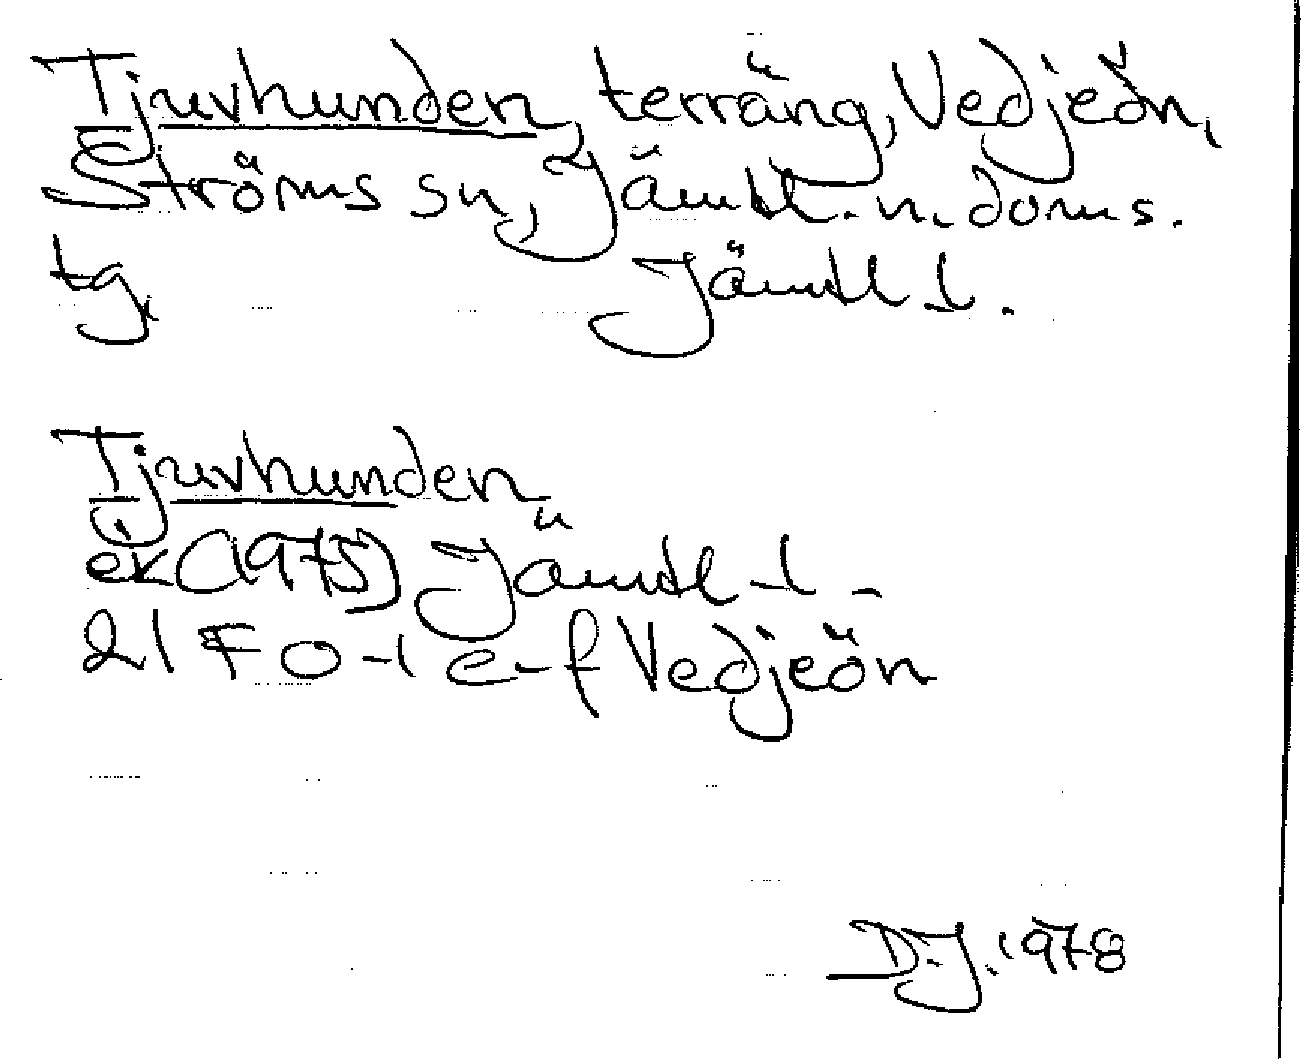 Tjuvhunden, terräng, Vedjeön,
Ströms sn, Jämtl. n. doms.
tg. Jämtl l.
Tjuvhunden
ek (1975) Jämtl l -
21 F 0-1 e-f Vedjeön
D.J. 1978